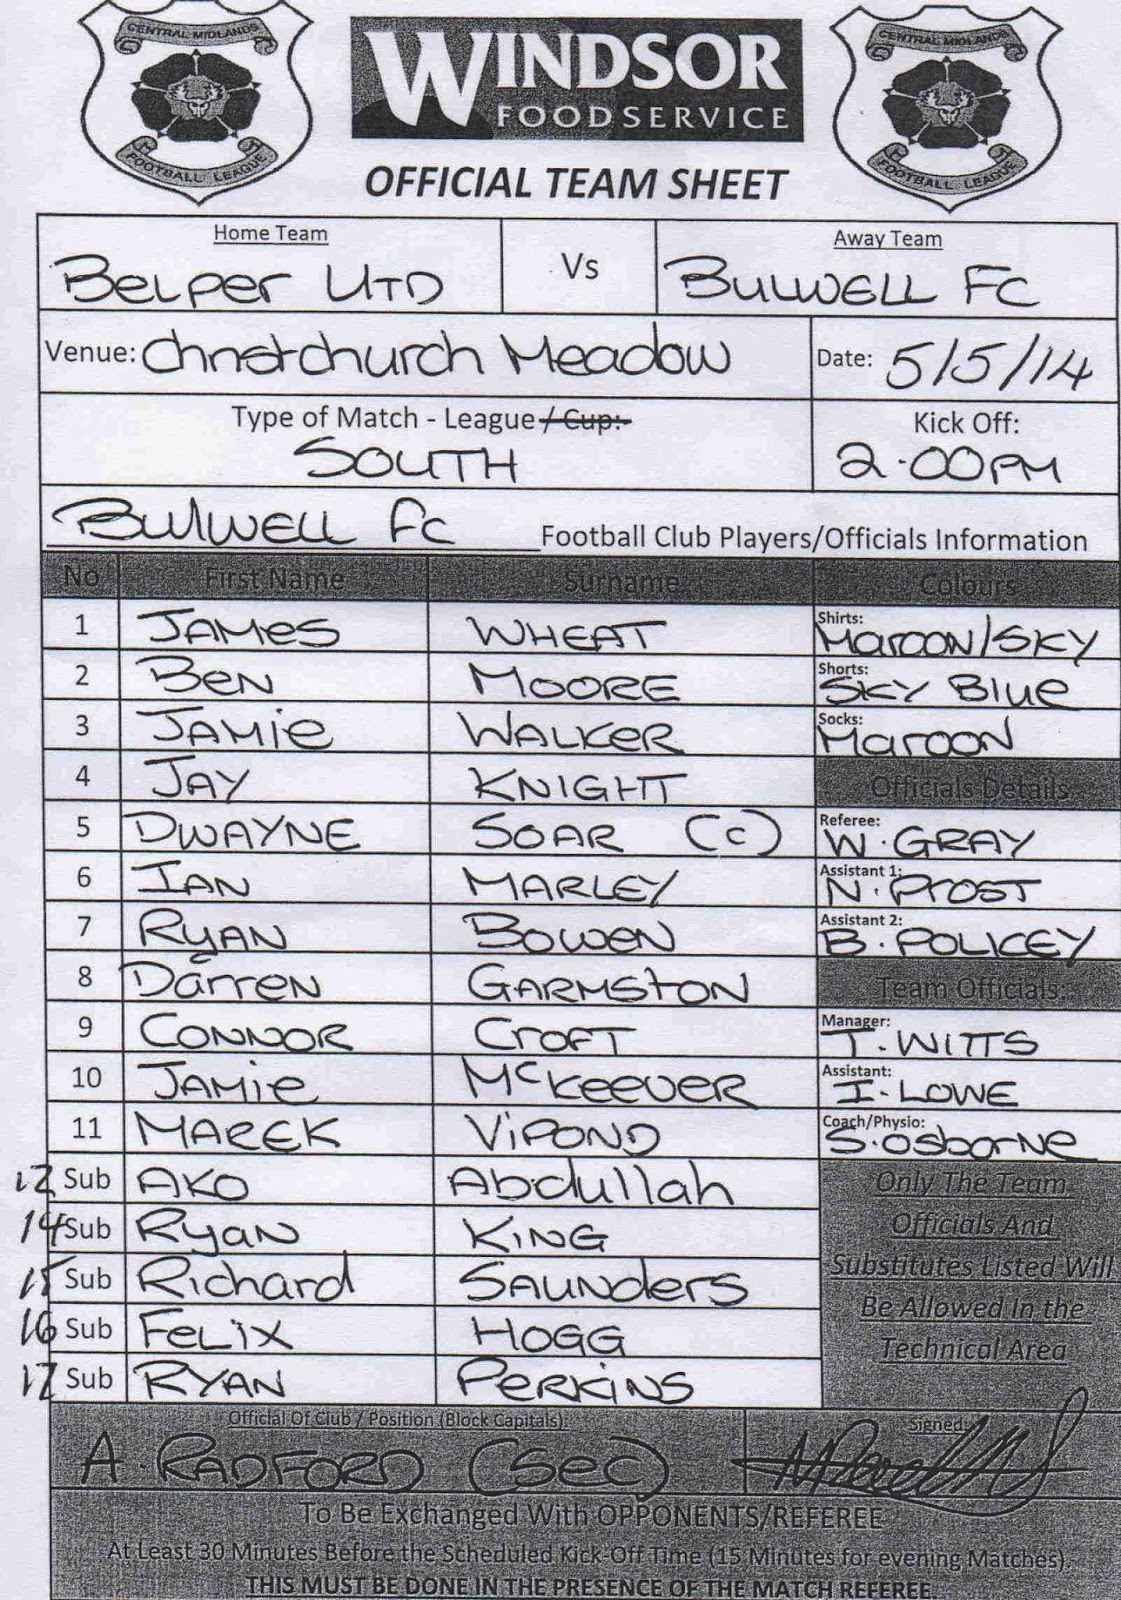 CENTRAL MIDLANDS
FOOTBALL LEAGUE
WINDSOR
FOODSERVICE
CENTRAL MIDLANDS
FOOTBALL LEAGUE
OFFICIAL TEAM SHEET
Home Team
Belper UTD
Vs
Away Team
BULWELL FC
Venue: Christchurch Meadow
Date: 5/5/14
Type of Match - League / Cup:-
SOUTH
Kick Off:
2.00PM
BULWELL FC Football Club Players/Officials Information
No First Name Surname Colours
1 JAMES WHEAT Shirts: Maroon/SKY
2 BEN MOORE Shorts: SKY Blue
3 JAMie WALKER Socks: Maroon
4 JAY KNIGHT Officials Details
5 DWAYNE SOAR (C) Referee: W. GRAY
6 IAN MARLEY Assistant 1: N. PROST
7 RYAN BOWEN Assistant 2: B. POLICEY
8 Darren GARMSTON Team Officials:
9 CONNOR CROFT Manager: T. WITTS
10 JAMie McKeever Assistant: I. LOWE
11 MAREK VIPOND Coach/Physio: S. Osborne
12 Sub AKO Abdullah
14 Sub Ryan KING
15 Sub Richard SAUNDERS
16 Sub FELIX HOGG
17 Sub RYAN PERKINS
Only The Team
Officials And
Substitutes Listed Will
Be Allowed In the
Technical Area
Official Of Club / Position (Block Capitals):
A. RADFORD (Sec)
Signed:
To Be Exchanged With OPPONENTS/REFEREE
At Least 30 Minutes Before the Scheduled Kick-Off Time (15 Minutes for evening Matches).
THIS MUST BE DONE IN THE PRESENCE OF THE MATCH REFEREE.